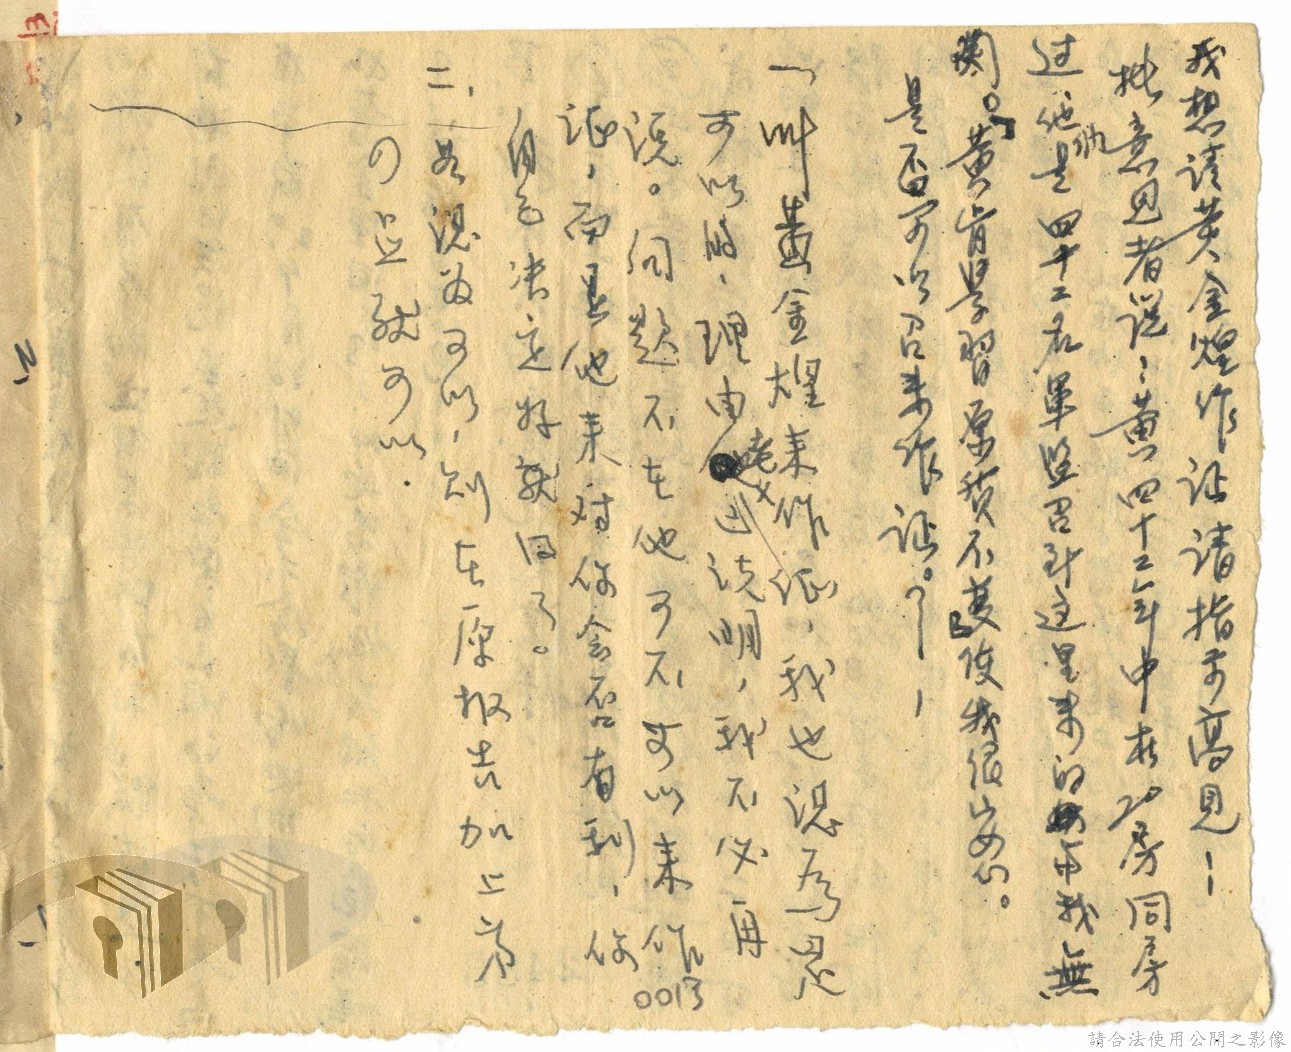 我想請黃金煌作証請指示高見！
批意見者說：黃四十二年中在20房同房
过，他們是四十二名軍监召到这里來的與我無
関。黃肯學習原
使我很安心。
是否可以召來作証。？！
一、叫黃金煌來作証，我也認為是
可以的，理由已說明，我不必再
說。问题不在他可不可以來作
証，而是他來对你会否有利，你
自己决定好就因了。
二、若認為可以，則在原报告加上蓋
印並就可以．
0013
請合法使用公開之影像